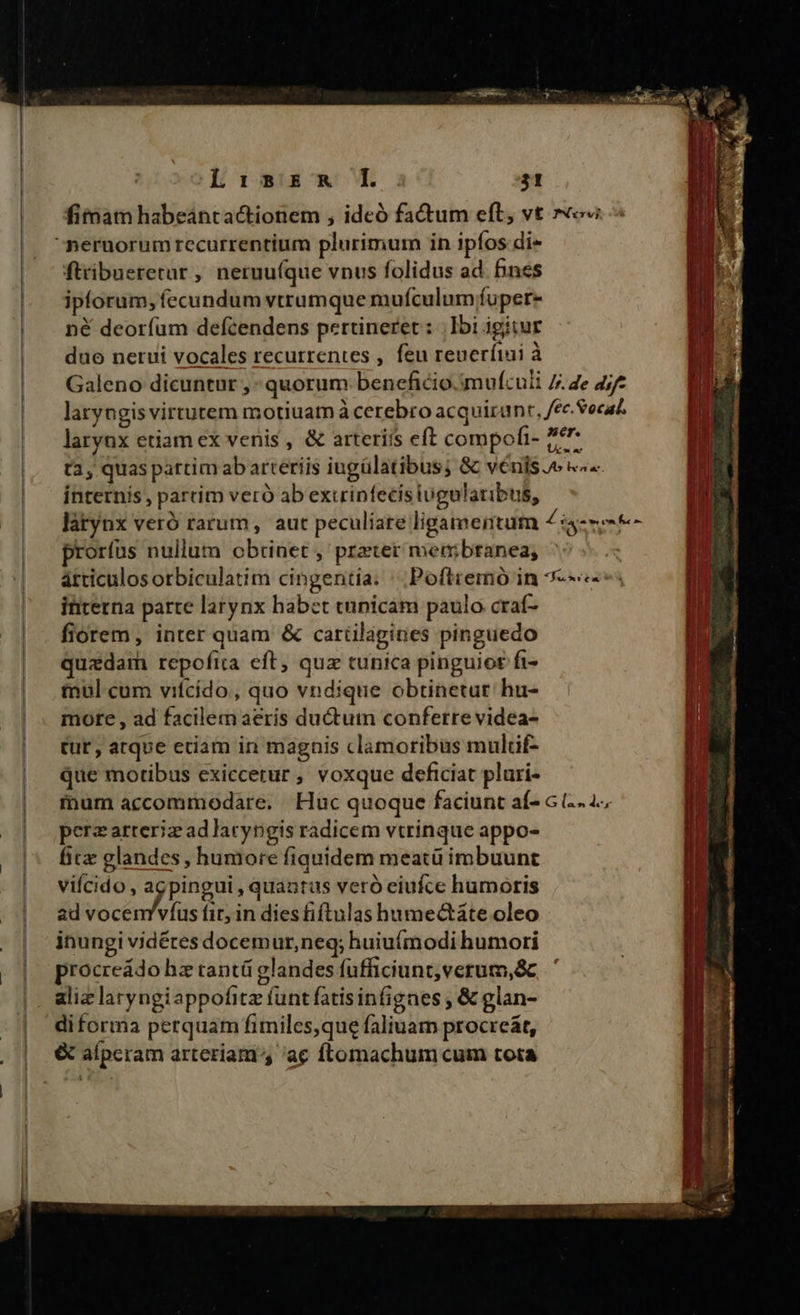 LIBER I. 31
ſimam habeánt actionem , ideò factum eſt, vt Nerui
neruorum recurrentium plurimum in ipſos di-
ſtribueretur , neruuſque vnus ſolidus ad fines
ipſorum, ſecundum vtrumque muſculum ſuper-
nè deorſum deſcendens pertineret : Ibi igitur
duo nerui vocales recurrentes , ſeu reuerſiui à
Galeno dicuntur , quorum beneficio muſculi li. de diſ-
laryngis virtutem motiuam à cerebro acquirunt, ſec. vocal.
larynx etiam ex venis , & arteriis eſt compoſi- ner.
ta, quas partim ab arteriis iugúlatibus; & vénis
internis , partim verò ab extrinſecis iugularibus,
lárynx verò rarum, aut peculiare ligamentum
prorſus nullum obtinet , præter membranea,
árticulos orbiculatim cingentia. Poſtremò in
interna parte larynx habet tunicam paulo craſ-
ſiorem , inter quam & cartilagines pinguedo
quædam repoſita eſt, quæ tunica pinguior ſi-
mul cum viſcido , quo vndique obtinetur hu-
more , ad facilem aëris ductum conferre videa-
tur , atque etiam in magnis clamoribus multiſ-
que motibus exiccetur , voxque deficiat pluri-
mum accommodare. Huc quoque faciunt aſ-
peræ arteriæ ad laryngis radicem vtrinque appo-
ſitæ glandes , humore ſiquidem meatū imbuunt
viſcido , ac pingui , quantus verò eiuſce humoris
ad vocem vſus ſit, in dies fiſtulas humectáte oleo
inungi vidétes docemur, neq; huiuſmodi humori
procreádo hæ tantū glandes ſufficiunt, verum, &
aliæ laryngi appoſitæ ſunt ſatis inſignes , & glan-
di forma perquam ſimiles, que ſaliuam procreát,
& aſperam arteriam , ac ſtomachum cum tota